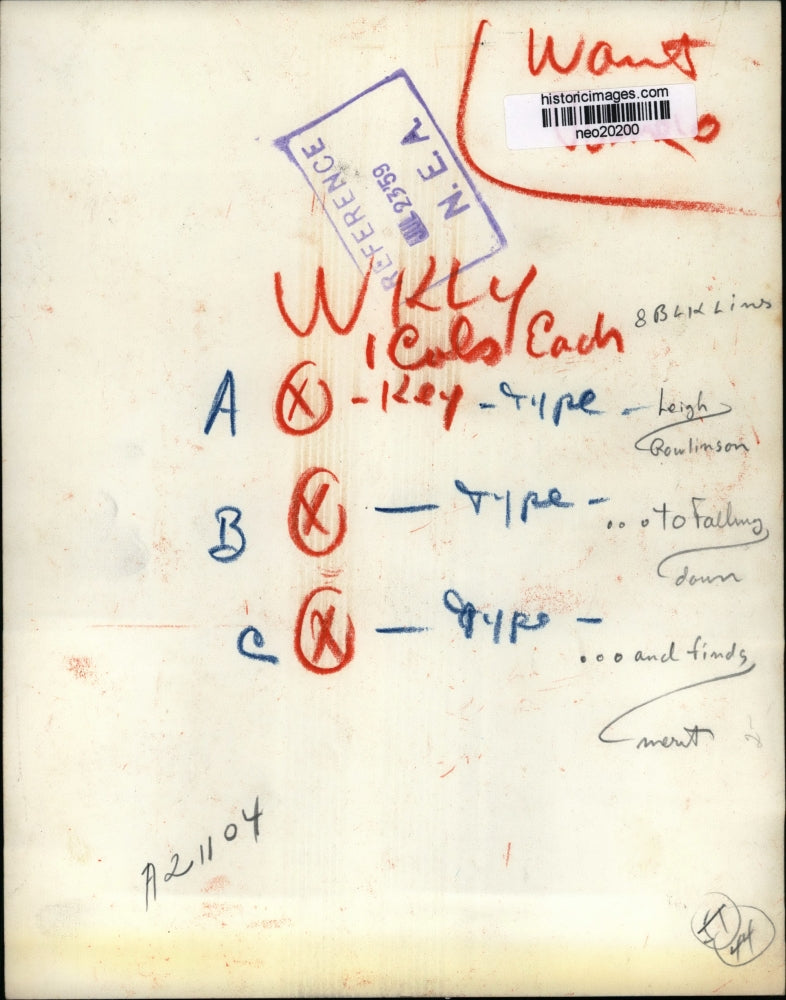 Want
historicimages.com
neo20200
REFERENCE
JUL 23 59
N. E. A.
WKLY
1 Cols Each
8 BLK Lines
A X - Key - Type - Leigh
Rowlinson
B X - Type - ... to Falling
down
C X - Type - ... and finds
merit
A21104
44